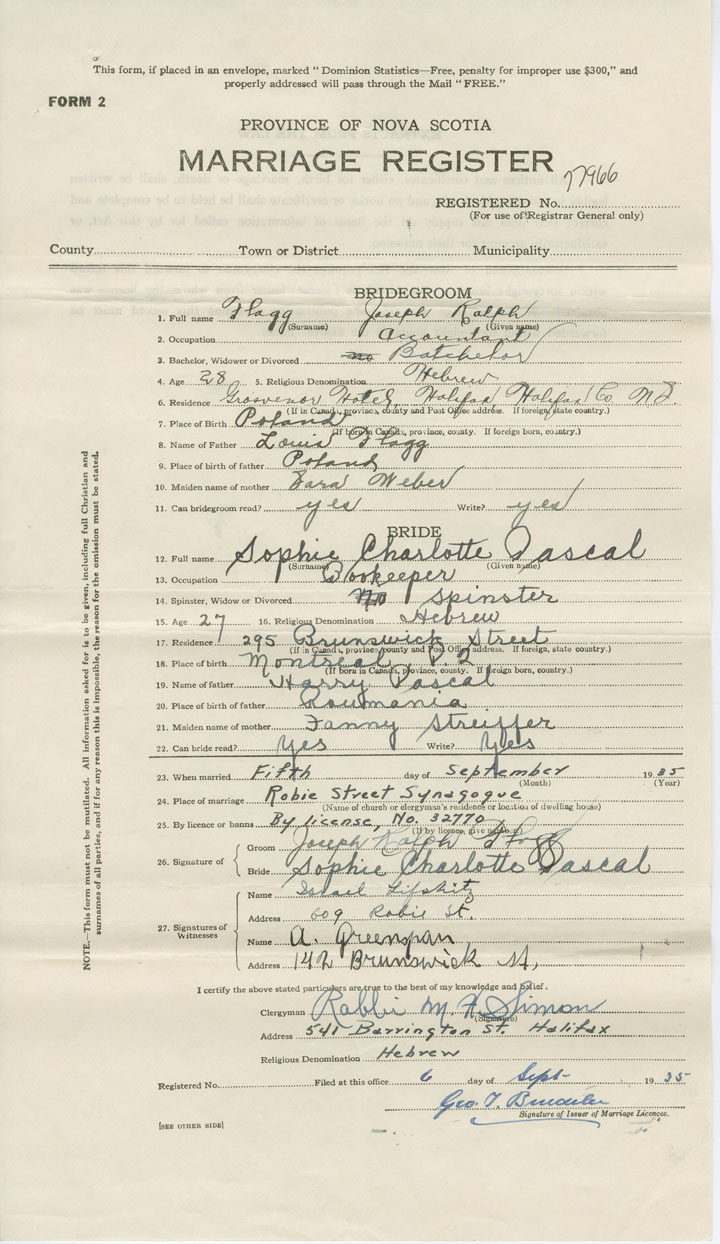 This form, if placed in an envelope, marked "Dominion Statistics—Free, penalty for improper use $300," and
properly addressed will pass through the Mail "FREE."
FORM 2
PROVINCE OF NOVA SCOTIA
MARRIAGE REGISTER
77966
REGISTERED No.
(For use of Registrar General only)
County Town or District Municipality
BRIDEGROOM
1. Full name Flagg Joseph Ralph
(Surname) (Given name)
2. Occupation Accountant
3. Bachelor, Widower or Divorced no Batchelor
4. Age 28 5. Religious Denomination Hebrew
6. Residence Grosvenor Hotel, Halifax, Halifax Co N.S.
(If in Canada, province, county and Post Office address. If foreign, state country.)
7. Place of Birth Poland
(If born in Canada, province, county. If foreign born, country.)
8. Name of Father Louis Flagg
9. Place of birth of father Poland
10. Maiden name of mother Sara Weber
11. Can bridegroom read? yes Write? yes
BRIDE
12. Full name Sophie Charlotte Pascal
(Surname) (Given name)
13. Occupation Bookeeper
14. Spinster, Widow or Divorced No spinster
15. Age 27 16. Religious Denomination Hebrew
17. Residence 295 Brunswick Street
(If in Canada, province, county and Post Office address. If foreign, state country.)
18. Place of birth Montreal, P.Q
(If born in Canada, province, county. If foreign born, country.)
19. Name of father Harry Pascal
20. Place of birth of father Roumania
21. Maiden name of mother Fanny Streiffer
22. Can bride read? Yes Write? Yes
23. When married Fifth day of September 1935
(Month) (Year)
24. Place of marriage Robie Street Synagogue
(Name of church or clergyman's residence or location of dwelling house)
25. By licence or banns By license, No. 32770
(If by licence, give number)
26. Signature of
Groom Joseph Ralph Flagg
Bride Sophie Charlotte Pascal
27. Signatures of Witnesses
Name Israel Lifshitz
Address 609 Robie St.
Name A. Greenspan
Address 142 Brunswick St,
I certify the above stated particulars are true to the best of my knowledge and belief.
Clergyman Rabbi M. H. Simon
(Signature)
Address 541 Barrington St. Halifax
Religious Denomination Hebrew
Registered No. Filed at this office 6 day of Sept 1935
Geo. T.
Signature of Issuer of Marriage Licences.
[SEE OTHER SIDE]
NOTE.—This form must not be mutilated. All information asked for is to be given, including full Christian and
surnames of all parties, and if for any reason this is impossible, the reason for the omission must be stated.